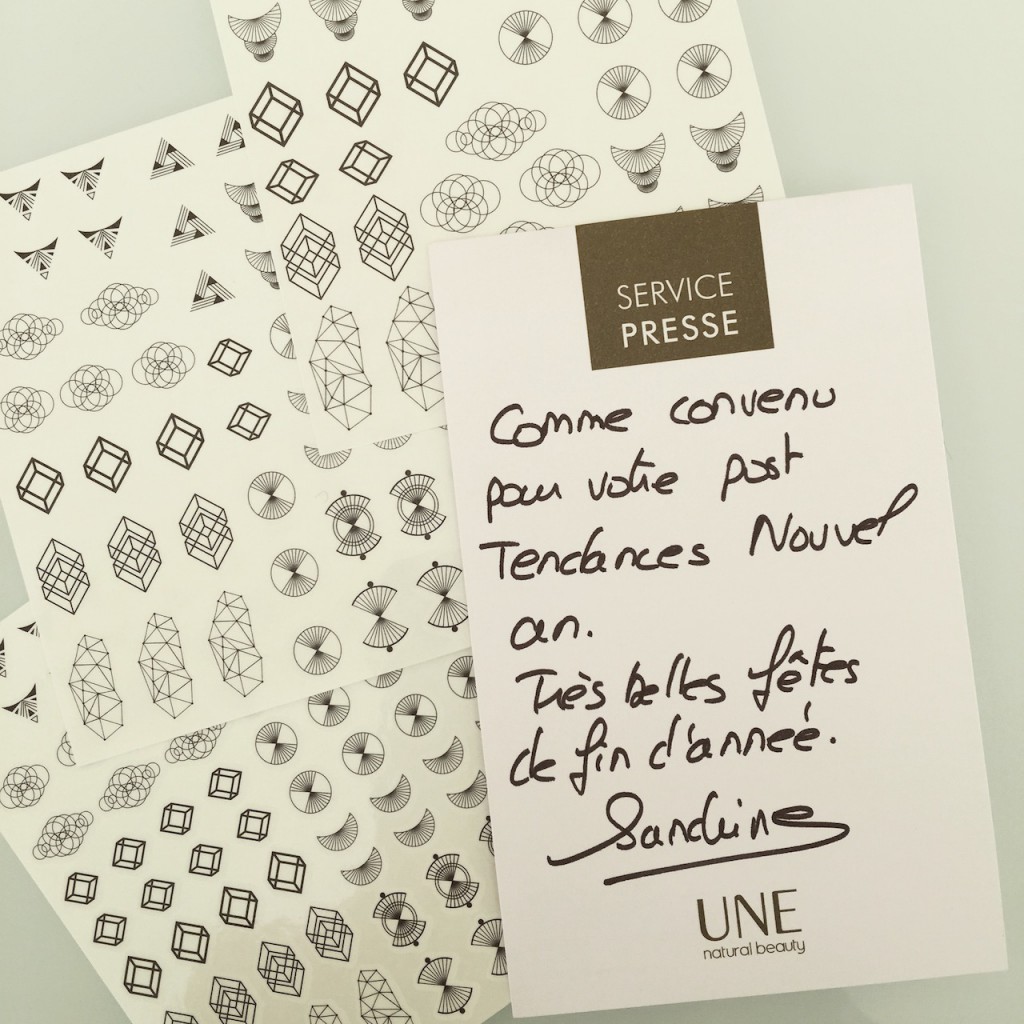 SERVICE
PRESSE
Comme convenu
pour votre post
Tendances Nouvel
an.
Très belles fêtes
de fin d'année.
Sandrine
UNE
natural beauty